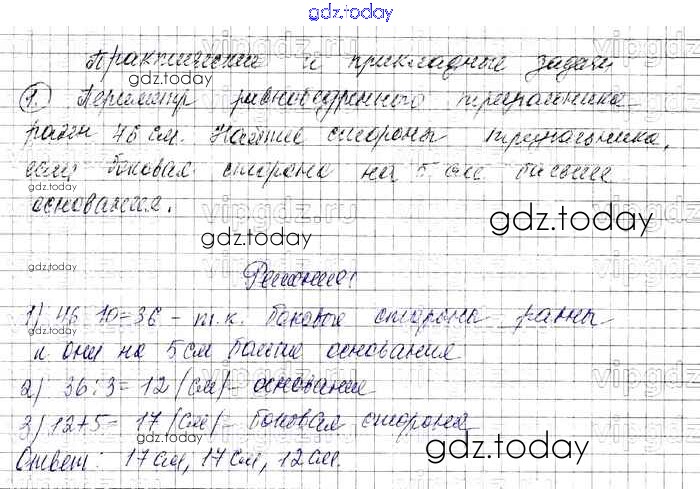 gdz.today
Практические и прикладные задачи
gdz.today
1. Периметр равнобедренного треугольника
gdz.today
равен 46 см. Найдите стороны треугольника,
если боковая сторона на 5 см больше
gdz.today
основания.
gdz.today
gdz.today
gdz.today
Решение:
1) 46-10=36 - т.к. боковые стороны равны
gdz.today
и они на 5 см больше основания
2) 36:3=12 (см) - основание
gdz.today
gdz.today
3) 12+5=17 (см) - боковая сторона
gdz.today
Ответ: 17 см, 17 см, 12 см.
gdz.today
vipgdz.ru